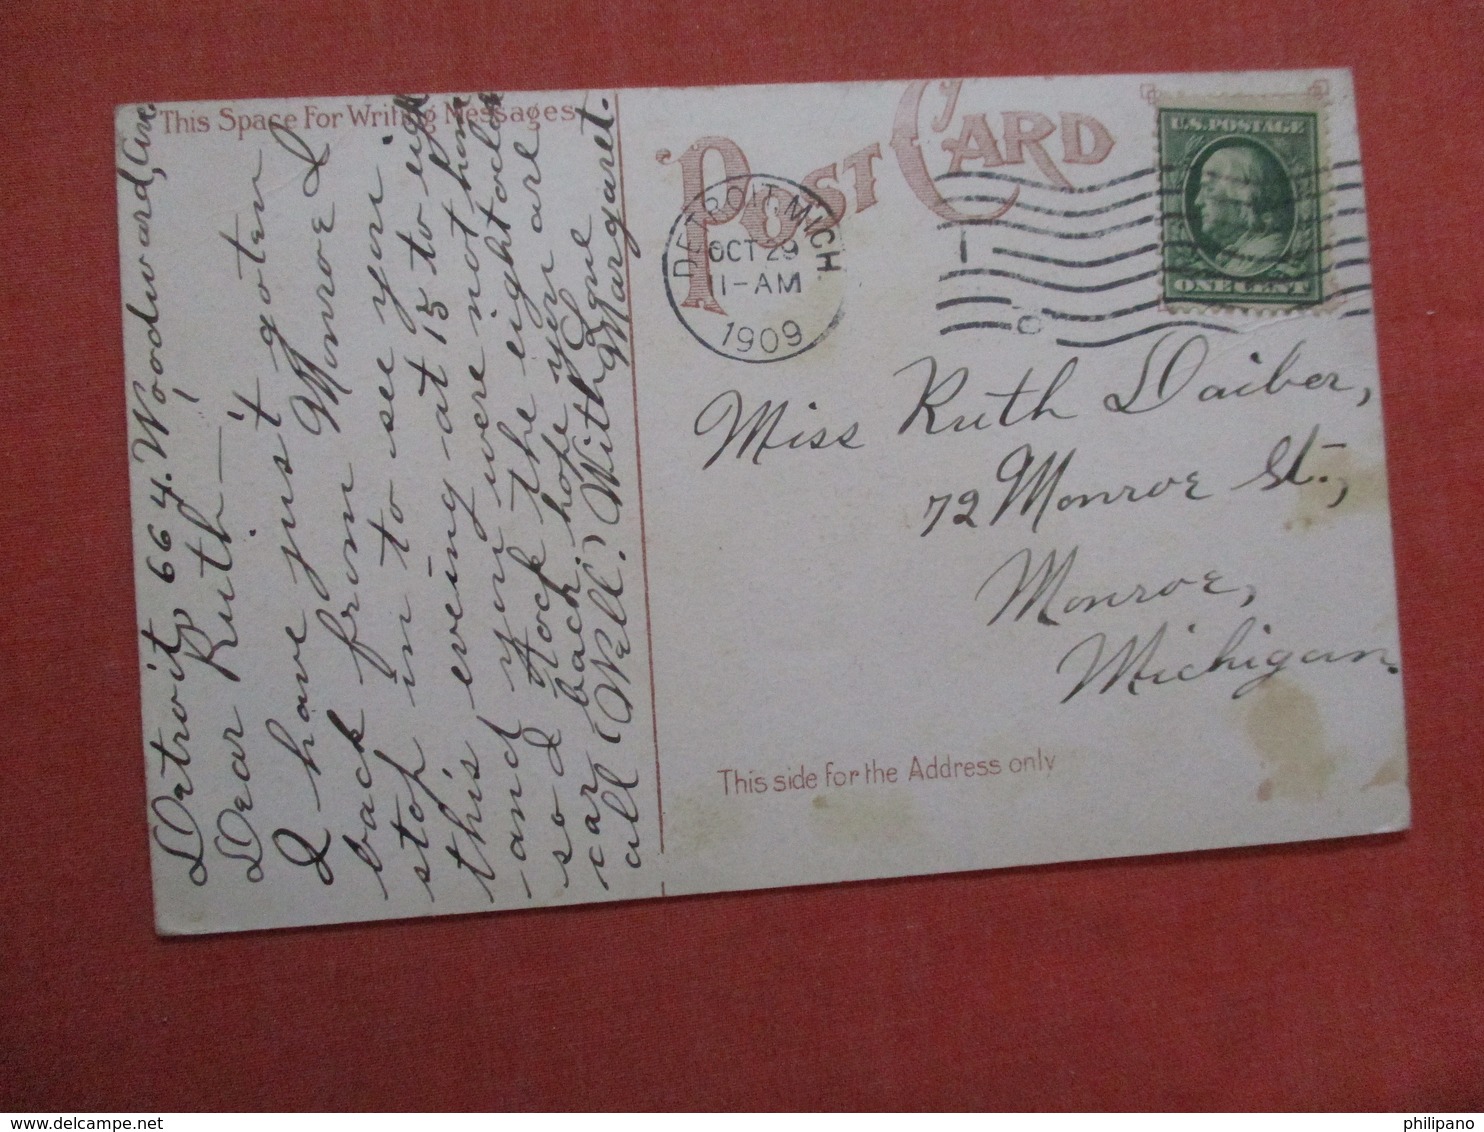 This Space For Writing Messages
Detroit, 664. Woodward, Ave.
Dear Ruth—
I have just goten
back from Monroe I
stop in to see you
this evening at 15 to eight
and you were not home
so I took the eight oclock
car back. hope you are
all Well. With Love
Margaret.
POST CARD
DETROIT, MICH
OCT 29
11-AM
1909
U.S. POSTAGE
ONE CENT
Miss Ruth Daiber,
72 Monroe St.,
Monroe,
Michigan.
This side for the Address only
philipano